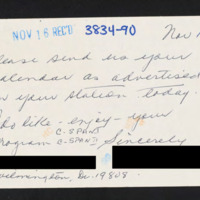 NOV 16 REC'D 3834-90 Nov 1
lease send us your
alendar as advertised
n your station today.
do like - enjoy - your
C-SPAN I
rogram C-SPAN II Sincerely
ilmington, De. 19808